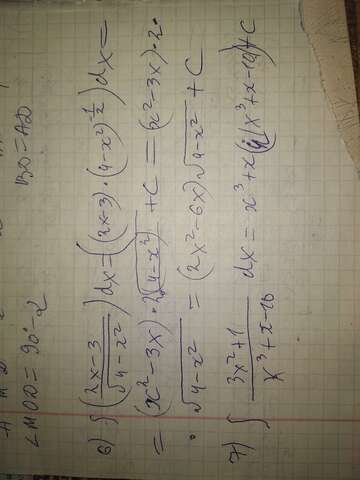 ∠MOD = 90° - α
BD = AD
6) ∫ (2x-3 / √(4-x²)) dx = ((2x-3)·(4-x²)^(-1/2)) dx =
= (x²-3x)·2√(4-x²) + C = (x²-3x)·2·
· √(4-x²) = (2x²-6x)√(4-x²) + C
7) ∫ (3x²+1 / x³+x-10) dx = x³+x (x³+x-10) + C